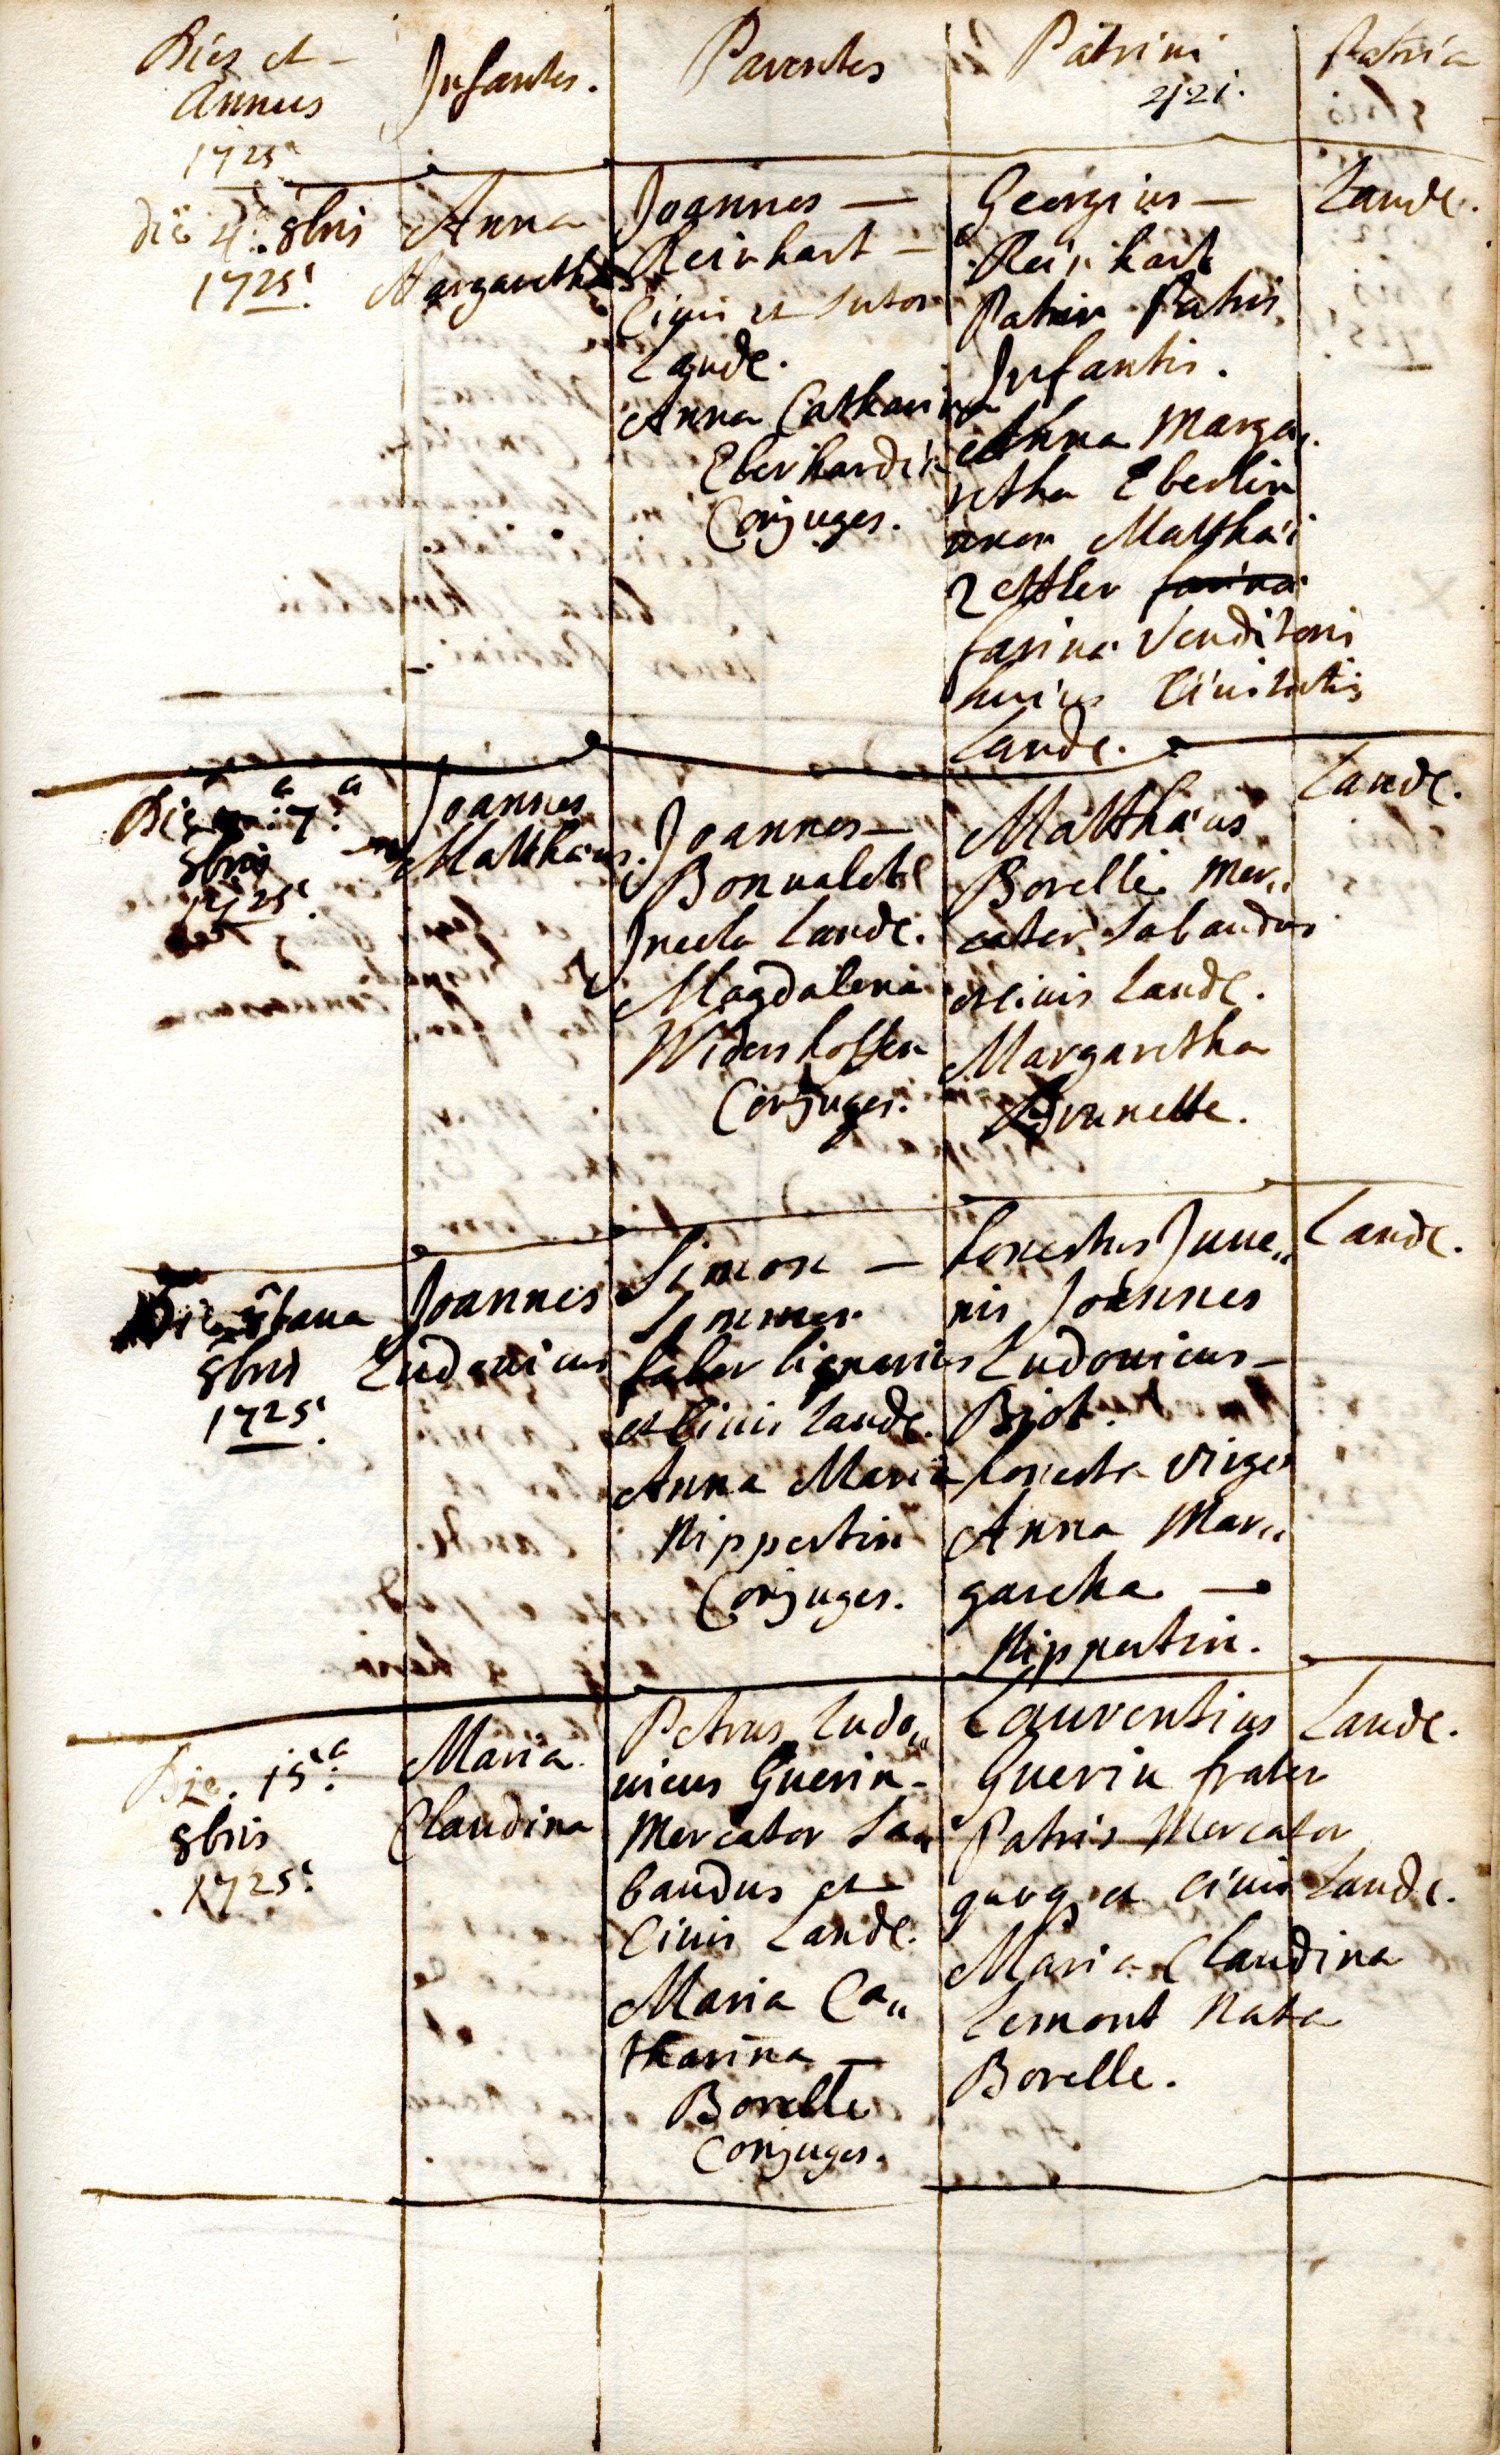 Dies et
Annus
1725
Infantes.
Parentes
Patrini
421.
Patria
die 4a 8bris
1725.
Anna
Margaretha
Joannes
Reinhart
Civis et sutor
Lande.
Anna Catharina
Eberhardin
Conjuges.
Georgius
Reinhart
Pater Patris
Infantis.
Anna Marga„
retha Eberlin
uxor Matthæi
Zettler farinæ
farinæ Venditoris
huius Civitatis
Lande.
Lande.
Die 7a
8bris
1725.
Joannes
Matthæus.
Joannes
Bonvalet
Incola Lande.
Magdalena
Widershoffen
Conjuges.
Matthæus
Borelle Mer„
cator Sabaudus
et civis Lande.
Margaretha
Brunette.
Lande.
Die 8tava
8bris
1725.
Joannes
Ludovicus
Simon
Sommer
faber lignarius
et Civis Lande.
Anna Maria
Rippertin
Conjuges.
honestus Juve„
nis Joannes
Ludovicus
Bjot.
honesta virgo
Anna Mar„
garetha
Rippertin.
Lande.
Die. 15a
8bris
1725.
Maria
Claudina
Petrus Ludo„
vicus Guerin
Mercator Sa„
baudus et
Civis Lande.
Maria Ca„
tharina
Borelle
Conjuges.
Laurentius
Guerin frater
Patris Mercator
quoq et civis Lande.
Maria Claudina
Lemont Nata
Borelle.
Lande.